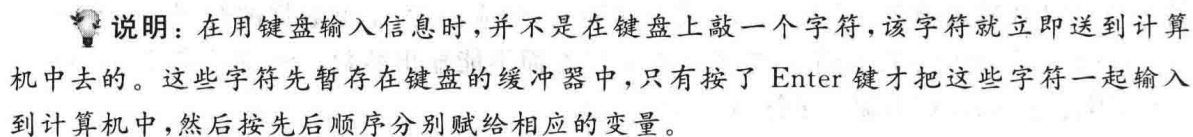 说明：在用键盘输入信息时，并不是在键盘上敲一个字符，该字符就立即送到计算
机中去的。这些字符先暂存在键盘的缓冲器中，只有按了 Enter 键才把这些字符一起输入
到计算机中，然后按先后顺序分别赋给相应的变量。